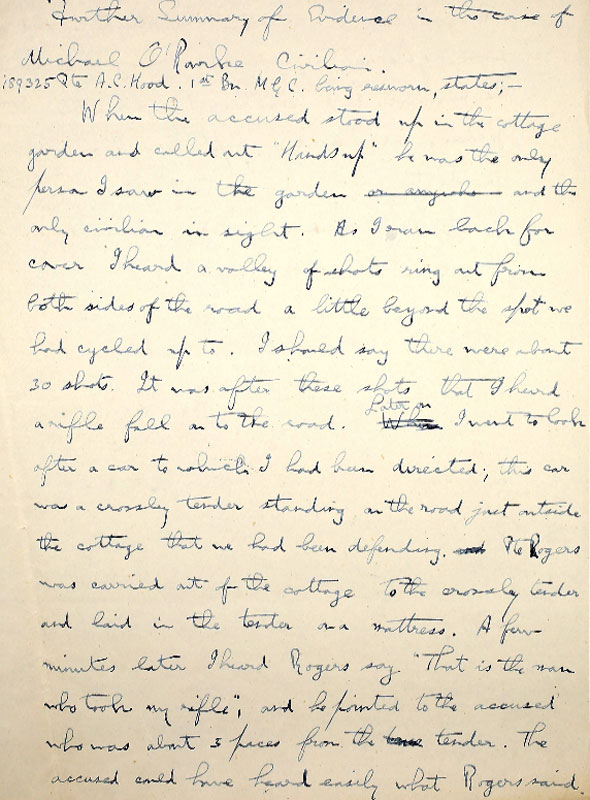 Further Summary of Evidence in the case of
Michael O'Rourke Civilian.
189325 Pte A.C. Hood. 1st Bn. M.G.C. being resworn, states;—
When the accused stood up in the cottage
garden and called out "Hands up" he was the only
person I saw in the garden or anywhere and the
only civilian in sight. As I ran back for
cover I heard a volley of shots ring out from
both sides of the road a little beyond the spot we
had cycled up to. I should say there were about
30 shots. It was after these shots that I heard
a rifle fall on to the road. When Later on I went to look
after a car to which I had been directed; this car
was a crossley tender standing on the road just outside
the cottage that we had been defending. and Pte Rogers
was carried out of the cottage to the crossley tender
and laid in the tender on a mattress. A few
minutes later I heard Rogers say "That is the man
who took my rifle"; and he pointed to the accused
who was about 3 paces from the tender. The
accused could have heard easily what Rogers said.